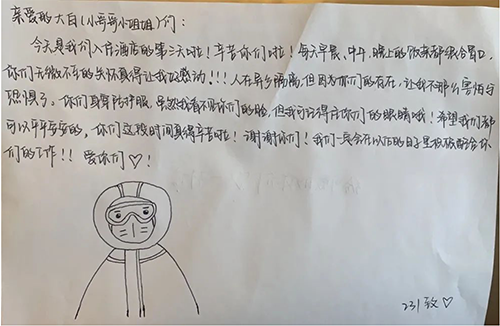 亲爱的大白(小哥哥小姐姐)们:
今天是我们入住酒店的第三天啦!辛苦你们啦!每天早晨、中午、晚上的饭菜都很合胃口,
你们无微不至的关怀真得让我好感动!!!人在异乡隔离,但因为你们的存在,让我不那么害怕与
恐惧了。你们身穿防护服,虽然我看不见你们的脸,但我可记得住你们的眼睛哦!希望我们都
可以平平安安的,你们这段时间真得辛苦啦!谢谢你们!我们一定会在以后的日子里积极配合你
们的工作!!爱你们♡!
231致♡